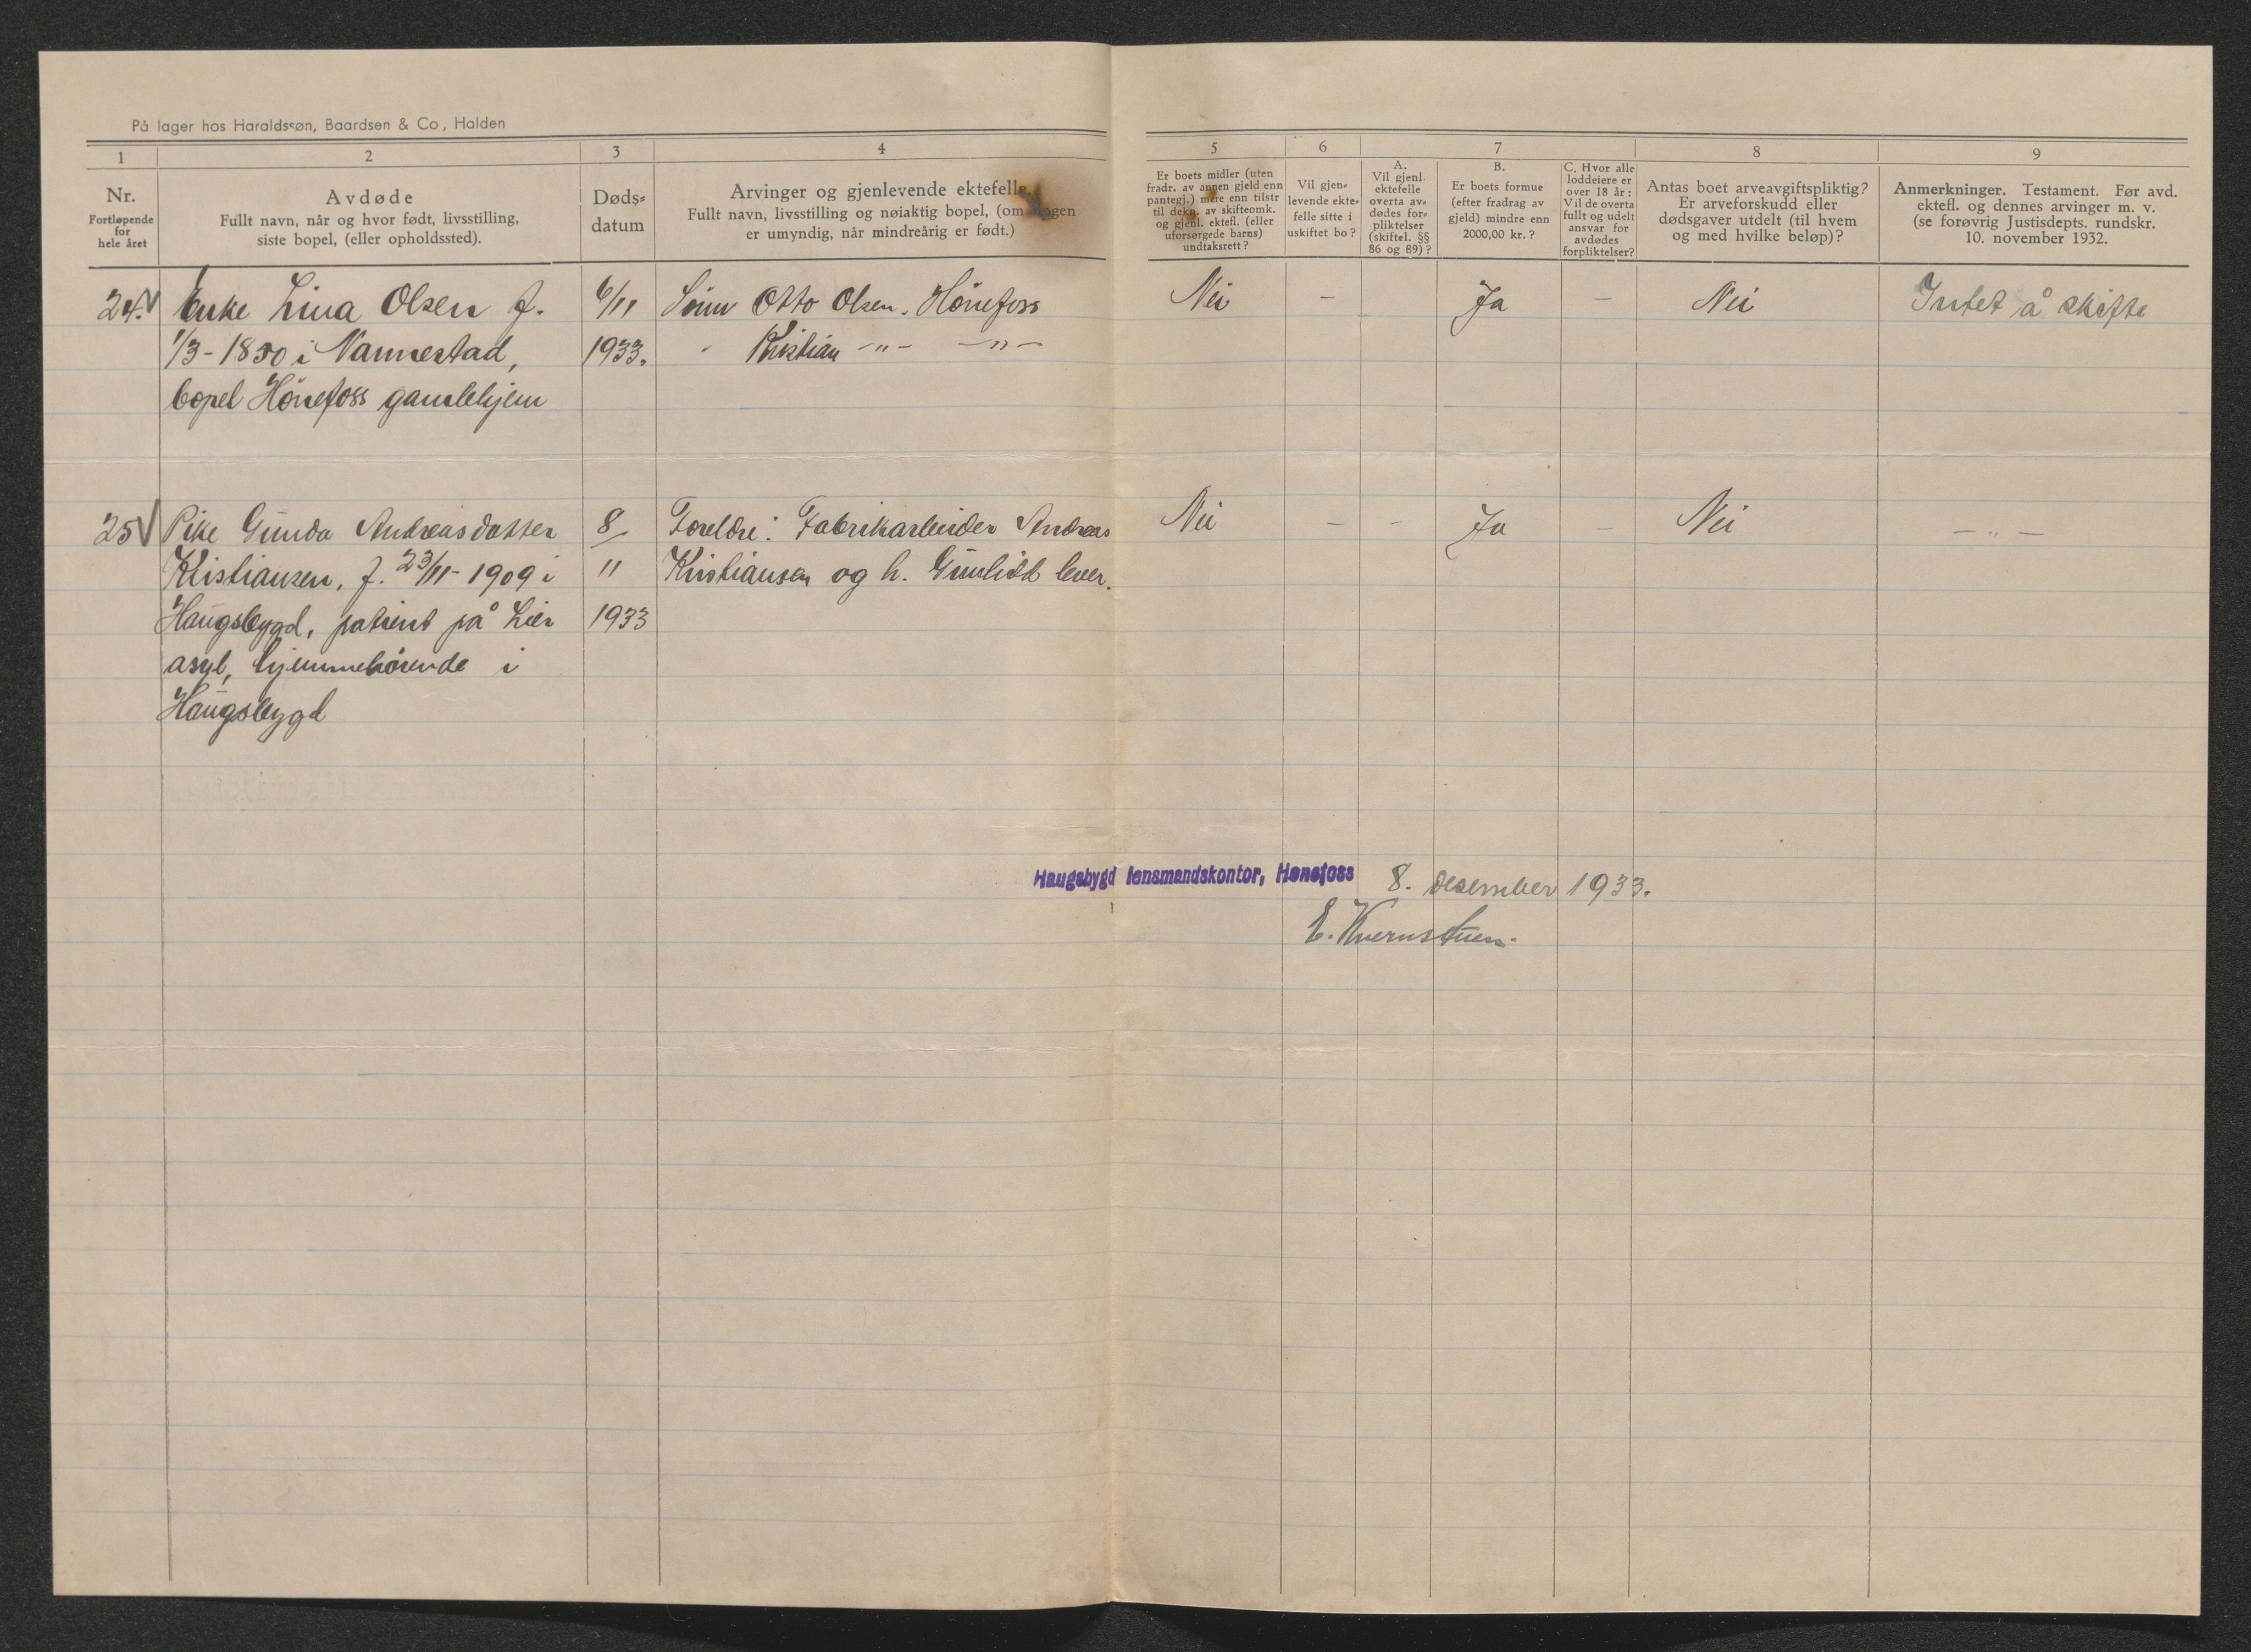 På lager hos Haraldssøn, Baardsen & Co, Halden
1 2 3 4 5 6 7 8 9
Nr.
Fortløpende
for
hele året
Avdøde
Fullt navn, når og hvor født, livsstilling,
siste bopel, (eller opholdssted).
Døds-
datum
Arvinger og gjenlevende ektefelle.
Fullt navn, livsstilling og nøiaktig bopel, (om nogen
er umyndig, når mindreårig er født.)
Er boets midler (uten
fradr. av annen gjeld enn
pantegj.) mere enn tilstr
til dekn. av skifteomk.
og gjenl. ektefl. (eller
uforsørgede barns)
undtaksrett?
Vil gjen-
levende ekte-
felle sitte i
uskiftet bo?
A.
Vil gjenl.
ektefelle
overta av-
dødes for-
pliktelser
(skiftel. §§
86 og 89)?
B.
Er boets formue
(efter fradrag av
gjeld) mindre enn
2000,00 kr.?
C. Hvor alle
loddeiere er
over 18 år:
Vil de overta
fullt og udelt
ansvar for
avdødes
forpliktelser?
Antas boet arveavgiftspliktig?
Er arveforskudd eller
dødsgaver utdelt (til hvem
og med hvilke beløp)?
Anmerkninger. Testament. Før avd.
ektefl. og dennes arvinger m. v.
(se forøvrig Justisdepts. rundskr.
10. november 1932.
24. Enke Lina Olsen f. 6/11 Sønn Otto Olsen. Hönefoss Nei – Ja – Nei Intet å skifte
1/3 - 1850 i Nannestad, 1933. " Kristian -"- -"-
bopel Hönefoss gamlehjem
25 Pike Gunda Andreasdatter 8/ Foreldre: Fabrikarbeider Andreas Nei – – Ja – Nei – " –
Kristiansen, f. 23/11 - 1909 i 11 Kristiansen og h. Gunhild lever.
Haugsbygd, patient på Lier 1933
asyl, hjemmehörende i
Haugsbygd
Haugsbygd lensmandskontor, Hønefoss 8. desember 1933.
E. Kvernstuen.